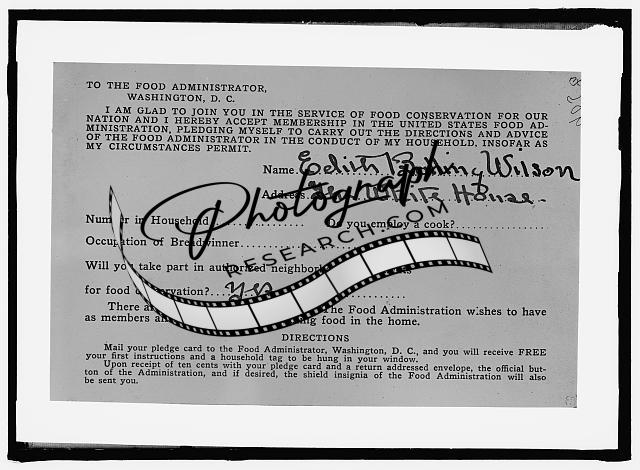 TO THE FOOD ADMINISTRATOR,
WASHINGTON, D. C.
I AM GLAD TO JOIN YOU IN THE SERVICE OF FOOD CONSERVATION FOR OUR
NATION AND I HEREBY ACCEPT MEMBERSHIP IN THE UNITED STATES FOOD AD-
MINISTRATION, PLEDGING MYSELF TO CARRY OUT THE DIRECTIONS AND ADVICE
OF THE FOOD ADMINISTRATOR IN THE CONDUCT OF MY HOUSEHOLD, INSOFAR AS
MY CIRCUMSTANCES PERMIT.
Name. Edith Bolling Wilson
Address. The White House.
Number in Household Do you employ a cook?
Occupation of Breadwinner
Photograph
RESEARCH.COM
Will you take part in authorized
for food conservation? Yes
There are The Food Administration wishes to have
as members food in the home.
DIRECTIONS
Mail your pledge card to the Food Administrator, Washington, D. C., and you will receive FREE
your first instructions and a household tag to be hung in your window.
Upon receipt of ten cents with your pledge card and a return addressed envelope, the official but-
ton of the Administration, and if desired, the shield insignia of the Food Administration will also
be sent you.